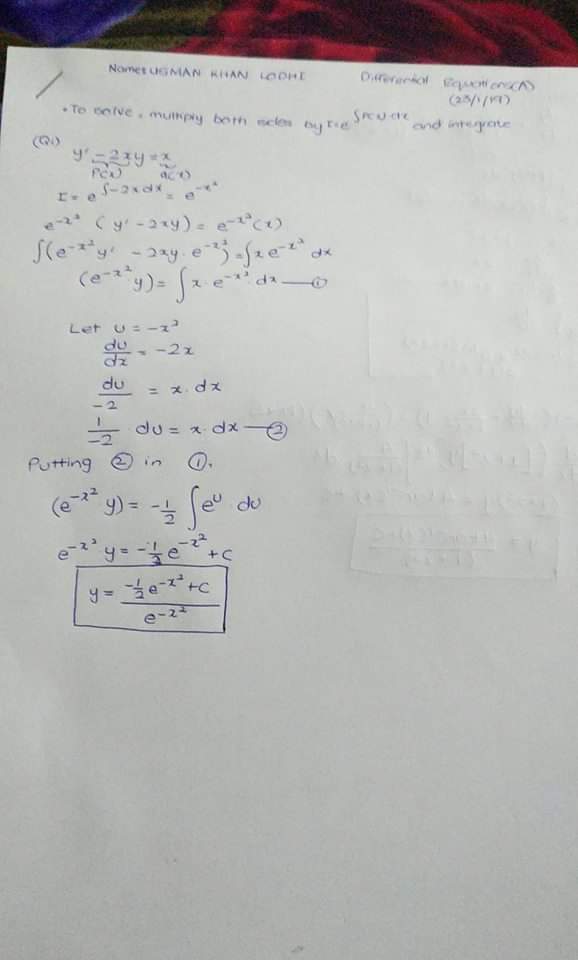 Name: USMAN KHAN LODHI Differential Equations(A)
(23/1/19)
• To solve, multiply both sides by I=e^∫P(x) dx and integrate
(Q1)
y' - 2xy = x
P(x) Q(x)
I = e^∫-2xdx = e^-x²
e^-x² (y' - 2xy) = e^-x² (x)
∫(e^-x² y' - 2xy · e^-x²) = ∫x e^-x² dx
(e^-x² · y) = ∫x · e^-x² · dx — ①
Let u = -x²
du/dx = -2x
du/-2 = x · dx
1/-2 · du = x · dx — ②
Putting ② in ①,
(e^-x² y) = -1/2 ∫e^u · du
e^-x² y = -1/2 e^-x² + C
y = (-1/2 e^-x² + C)/e^-x²